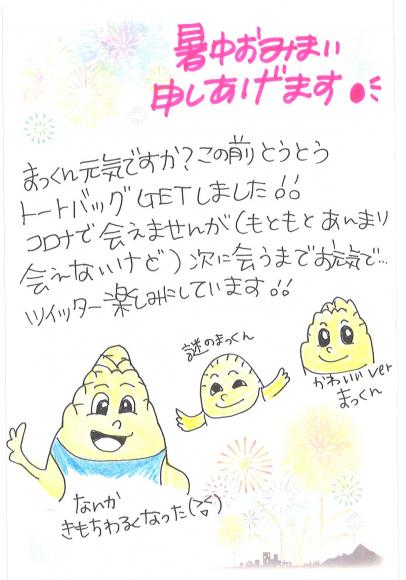 暑中おみまい
申しあげます
まっくん元気ですか?この前とうとう
トートバッグGETしました!!
コロナで会えませんが(もともとあんまり
会えないけど)次に会うまでお元気で…
ツイッター楽しみにしています!!
謎のまっくん
かわいいver
まっくん
なんか
きもちわるくなった(>_<)